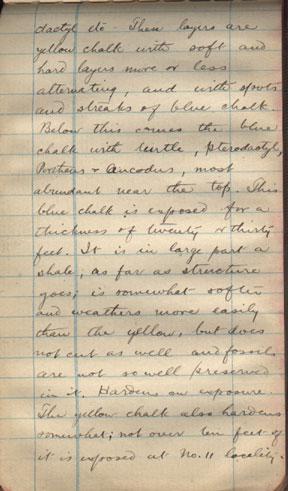 dactyl etc. These layers are
yellow chalk with soft and
hard layers more or less
alternating, and with spots
and streaks of blue chalk.
Below this comes the blue
chalk with turtle, pterodactyl,
Portheus & Ancodus, most
abundant near the top. This
blue chalk is exposed for a
thickness of twenty or thirty
feet. It is in large part a
shale, as far as structure
goes; is somewhat softer
and weathers more easily
than the yellow, but does
not cut as well and fossils
are not so well preserved
in it. Hardens on exposure.
The yellow chalk also hardens
somewhat; not over ten feet of
it is exposed at No. 11 locality.